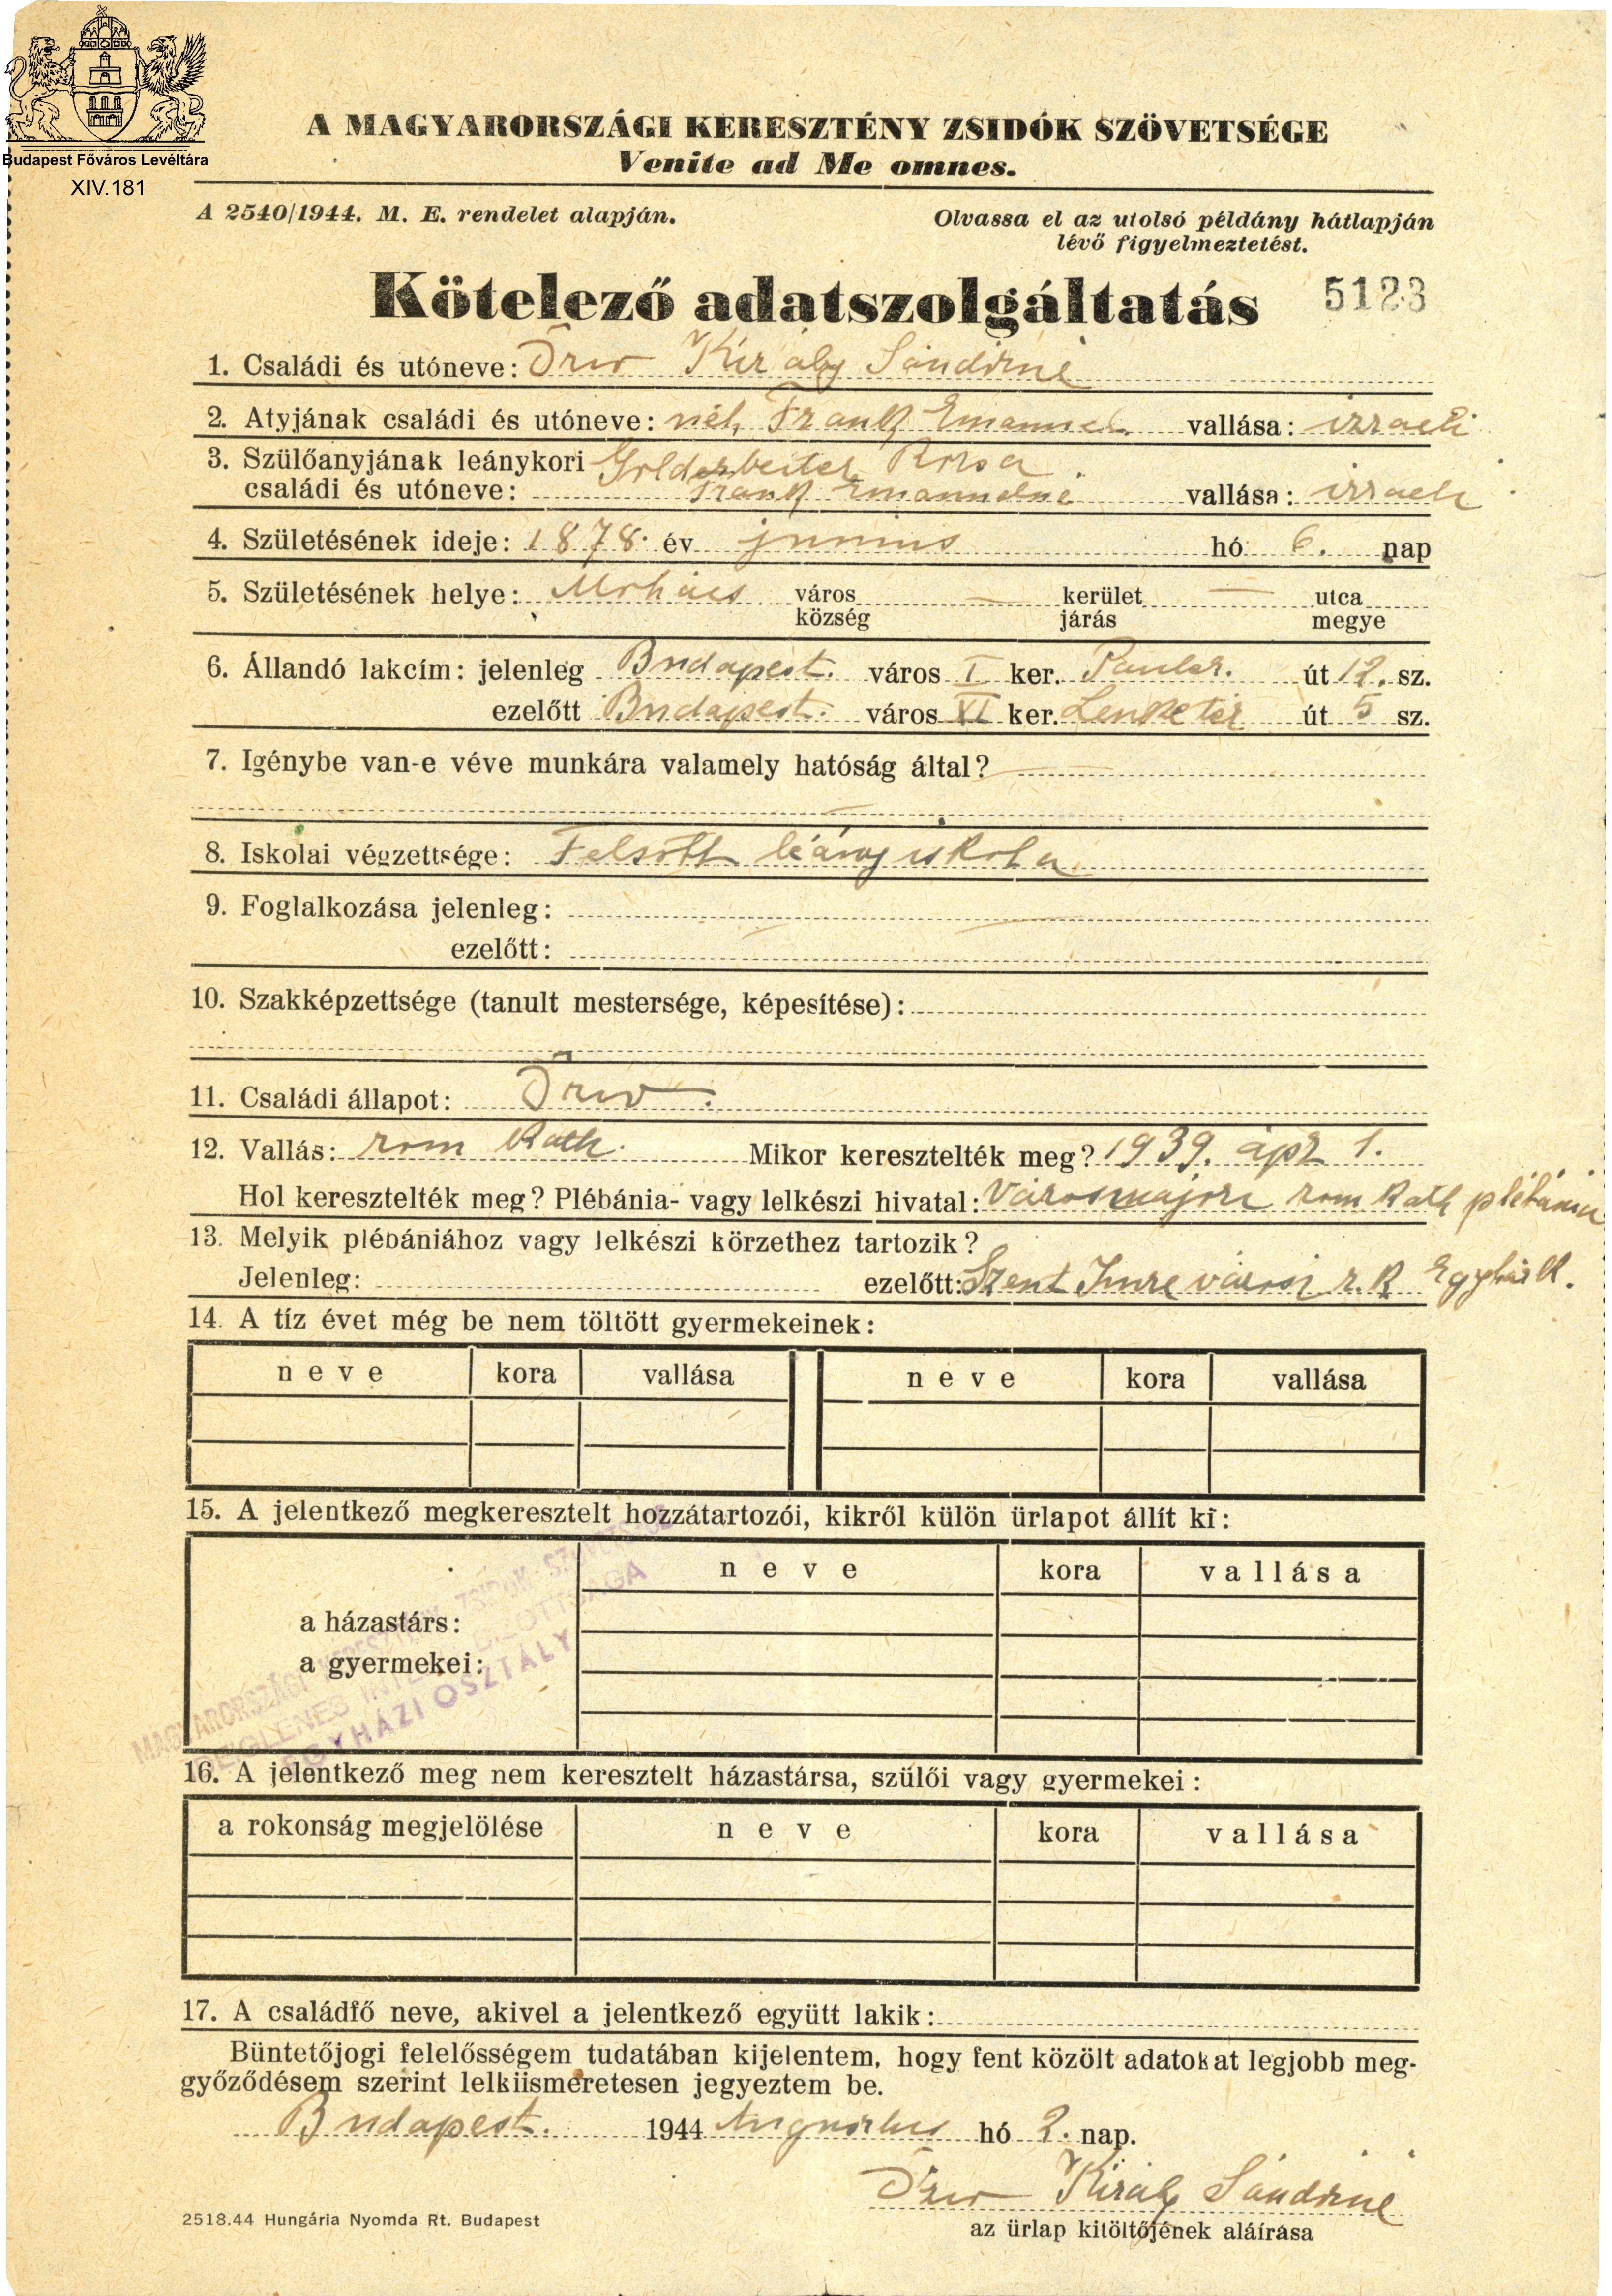 Budapest Főváros Levéltára
XIV.181
A MAGYARORSZÁGI KERESZTÉNY ZSIDÓK SZÖVETSÉGE
Venite ad Me omnes.
A 2540/1944. M. E. rendelet alapján.
Olvassa el az utolsó példány hátlapján
lévő figyelmeztetést.
Kötelező adatszolgáltatás 5123
1. Családi és utóneve: Özv Király Sándorné
2. Atyjának családi és utóneve: néh. Frank Emanuel vallása: izraeli
3. Szülőanyjának leánykori Goldarbeiter Rozsa
családi és utóneve: Frank Emanuelné vallása: izraeli
4. Születésének ideje: 1878. év junius hó 6. nap
5. Születésének helye: Mohács város kerület utca
község járás megye
6. Állandó lakcím: jelenleg Budapest. város I ker. Pauler. út 12. sz.
ezelőtt Budapest. város XI ker. Lenke tér út 5 sz.
7. Igénybe van-e véve munkára valamely hatóság által? —
8. Iskolai végzettsége: Felsőbb leány iskola
9. Foglalkozása jelenleg:
ezelőtt:
10. Szakképzettsége (tanult mestersége, képesítése):
11. Családi állapot: Özv.
12. Vallás: rom kath. Mikor keresztelték meg? 1939. ápr 1.
Hol keresztelték meg? Plébánia- vagy lelkészi hivatal: Városmajori rom kath plébánia
13. Melyik plébániához vagy lelkészi körzethez tartozik?
Jelenleg: ezelőtt: Szent Imre városi r. k. Egyházk.
14. A tíz évet még be nem töltött gyermekeinek:
neve kora vallása neve kora vallása
15. A jelentkező megkeresztelt hozzátartozói, kikről külön ürlapot állít ki:
neve kora vallása
a házastárs:
a gyermekei:
MAGYARORSZÁGI KERESZTÉNY ZSIDÓK SZÖVETSÉGE
IDEIGLENES INTÉZŐ BIZOTTSÁGA
EGYHÁZI OSZTÁLY
16. A jelentkező meg nem keresztelt házastársa, szülői vagy gyermekei:
a rokonság megjelölése neve kora vallása
17. A családfő neve, akivel a jelentkező együtt lakik:
Büntetőjogi felelősségem tudatában kijelentem, hogy fent közölt adatokat legjobb meg-
győződésem szerint lelkiismeretesen jegyeztem be.
Budapest. 1944 Augusztus hó 2. nap.
Özv Király Sándorné
2518.44 Hungária Nyomda Rt. Budapest
az ürlap kitöltőjének aláírása